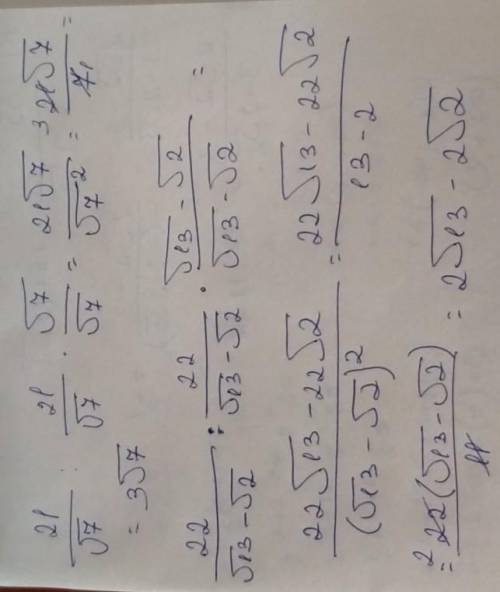 21/√7 : 21/√7 · √7/√7 = 21√7/√7² = 3 21√7/7 1 =
= 3√7
22/(√13-√2) : 22/(√13-√2) · (√13-√2)/(√13-√2) =
(22√13-22√2)/(√13-√2)² = (22√13-22√2)/(13-2)
= 2 22(√13-√2)/11 = 2√13-2√2